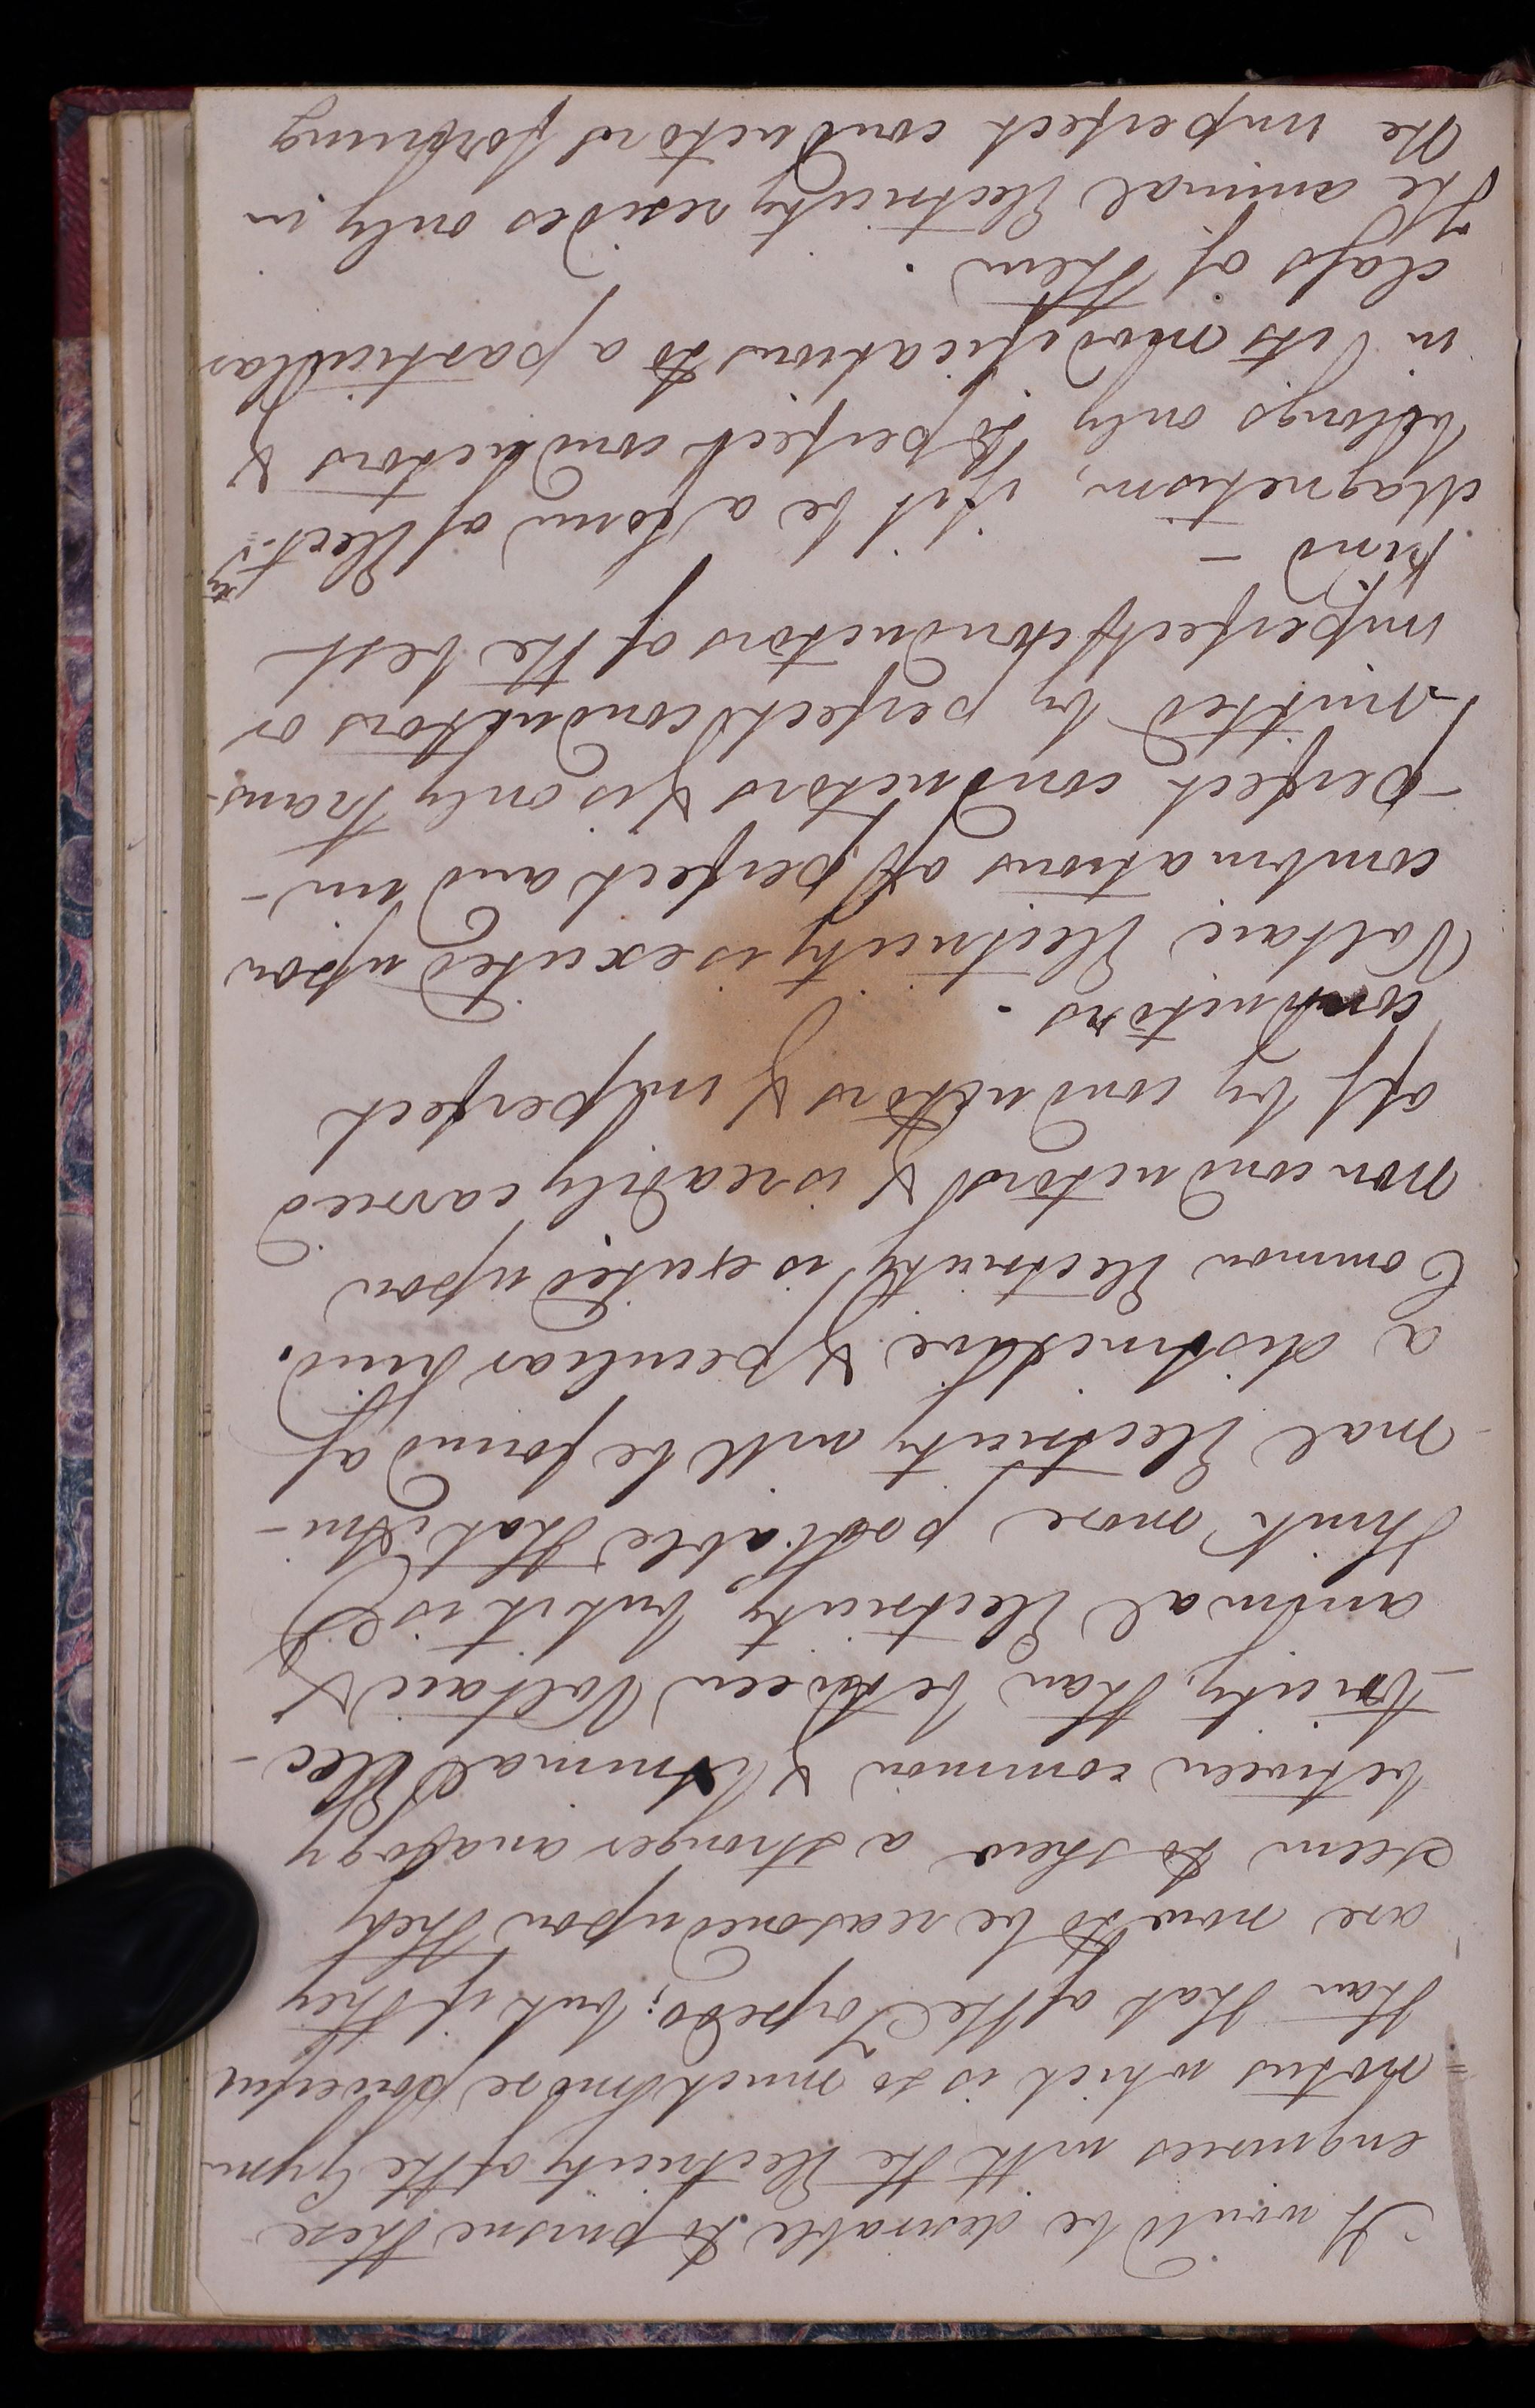 It would be desirable to pursue these
enquiries with the Electricity of the Gym
=notus which is so much more powerful
than that of the Torpedo; but if they
are now to be reasoned upon they
seem to shew a stronger analogy
between common & Animal Elec-
-tricity, than between Voltaic &
animal Electricity, but it is I
think more probable that Ani-
-mal Electricity will be found of
a distinctive & peculiar kind.
Common Electricity is excited upon
non conductors & is readily carried
off by conductors & imperfect
conductors.
Voltaic Electricity is excited upon
combinations of perfect and im-
-perfect conductors & is only trans-
-mitted by perfect conductors or
imperfect conductors of the best
kind -
Magnetism, if it be a form of Elect.ty
belongs only to perfect conductors &
in its modifications to a particular
class of them.
The animal Electricity resides only in
the imperfect conductors forming